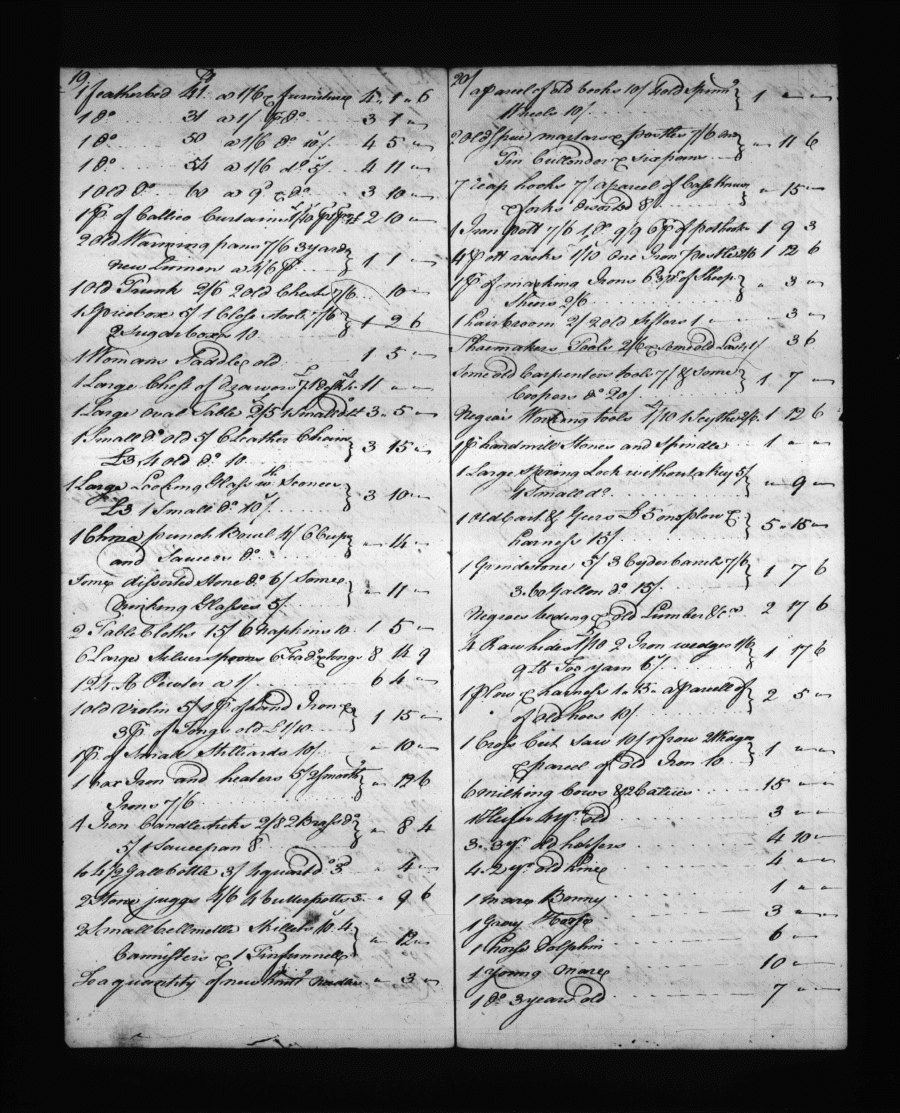 19/
1 featherbed 41 lb a 1/6 & furniture 4 .. 1 .. 6
1 do 31 a 1/ & do 3 1 ..
1 do 50 a 1/6 do 10/ 4 5 ..
1 do 54 a 1/6 do 5/ 4 11 ..
1 Old do 60 a 9d & do 3 10 ..
1 pr of Callico Curtains 2 10 ..
2 Old Warming pans 7/6 3 yards
new Linnen a 4/6 pr 1 1 ..
1 Old Trunk 2/6 2 Old Chests 7/6 .. 10 ..
1 Spicebox 5/ 1 Close stool 7/6
2 Sugar boxes 10 1 2 6
1 Womans Saddle old 1 5 ..
1 Large Chest of Drawers 11 .. ..
1 Large Oval Table 1 Small do 3 .. 5 ..
1 Small do old 5/ 6 Leather Chairs
£3, 4 old do 10 3 15 ..
1 Large Looking Glass wth Sconces
£3 1 Small do 10/ 3 10 ..
1 China punch Bowl 4/ 6 Cups
and Saucers do .. 14 ..
Some dissorted Stone do 6/ Some
Drinking Glasses 5/ .. 11 ..
2 Table Cloths 15/ 6 Napkins 10 1 5 ..
6 Large Silver spoons 6 Tea do & Tongs 8 14 9
124 lb Pewter a 1/ 6 4 ..
1 Old Violin 5/ 1 pr of hand Irons &
3 pr of Tongs old £1/10 1 15 ..
1 pr of Small Stilliards 10/ .. 10 ..
1 box Iron and heaters 5/ 2 smooth
Irons 7/6 .. 12 6
4 Iron Candlesticks 2/8 2 Brass do
5/ 1 Saucepan 8 .. 8 4
to 4 1/2 Gall bottle 3/ 4 quart do 3 .. 4 ..
2 Stone juggs 4/6 4 butterpotts 5 .. 9 6
2 Small bellmettle Skillets 10/ 4
Cannisters & 1 Tinfunnell .. 12 ..
To a quantity of new .. 3 ..
20/
a parcel of old books 10/ 4 old spining
Wheels 10/ 1 .. ..
2 Old Spice mortars & pestles 7/6 One
Tin Cullender & six pans .. 11 6
7 reap hooks 7/ a parcel of Case knives
& forks dissorted 8/ .. 15 ..
1 Iron Pott 7/6 1 do 9/9 6 pr of pothooks 1 9 3
4 Pott racks 1/10 One Iron Pestle 2/6 1 12 6
1 pr of marking Irons 6d 3 pr of Sheep
Shears 2/6 .. 3 ..
1 hairbroom 2/ 2 old Sifters 1 .. 3 ..
Shoemakers Tools 2/6 & some old Lasts 1/ 3 6
Some old Carpenters tools 7/ & Some
Coopers do 20/ 1 7 ..
Negroes Working tools 1/10 1 Scythe 2/6 1 12 6
1 pr handmill Stones and spindle 1 .. ..
1 Large Spring Lock without a key 5/
4 Small do .. 9 ..
1 Old Cart & Geers £5 one plow &
harness 15/ 5 .. 15 ..
1 Grindstone 5/ 3 Cyder barrels 7/6
3 .. 60 Gallon do 15/ 1 7 6
Negroes beding & old Lumber &ca 2 17 6
4 Raw hides 1/10 2 Iron wedges 1/6
9 lb Tow yarn 6/ 1 17 6
1 plow & harness 1 .. 15 .. a parcell of
of old hoes 10/ 2 5 ..
1 Cross Cut Saw 10/ 1 frow 2 Wedges
& parcel of old Iron 10 1 .. ..
6 milking Cows & 2 Calves 15 .. ..
1 Heifer 4 yrs old 3 .. ..
3 .. 3 yr old heifers 4 10 ..
4 .. 2 yr old kine 4 .. ..
1 mare Bonny 1 .. ..
1 Gray Horse 3 .. ..
1 horse Dolphin 6 ..
1 Young mare 10 ..
1 do 3 years old 7 ..